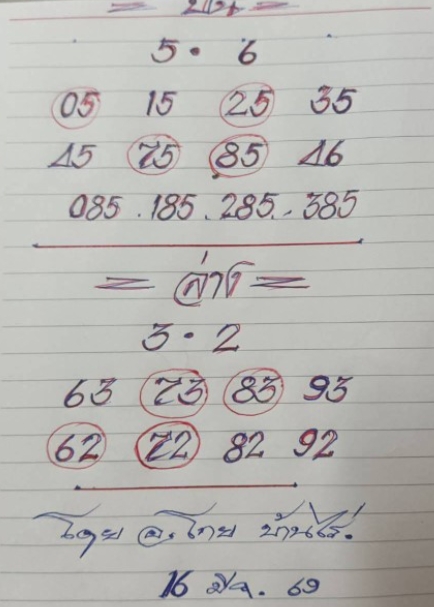 = บน =
5 • 6
05 15 25 35
45 75 85 46
085 . 185 . 285 . 385
= ล่าง =
3 • 2
63 73 83 93
62 72 82 92
โดย อ. โทย บ้านไร่.
16 มีค. 69